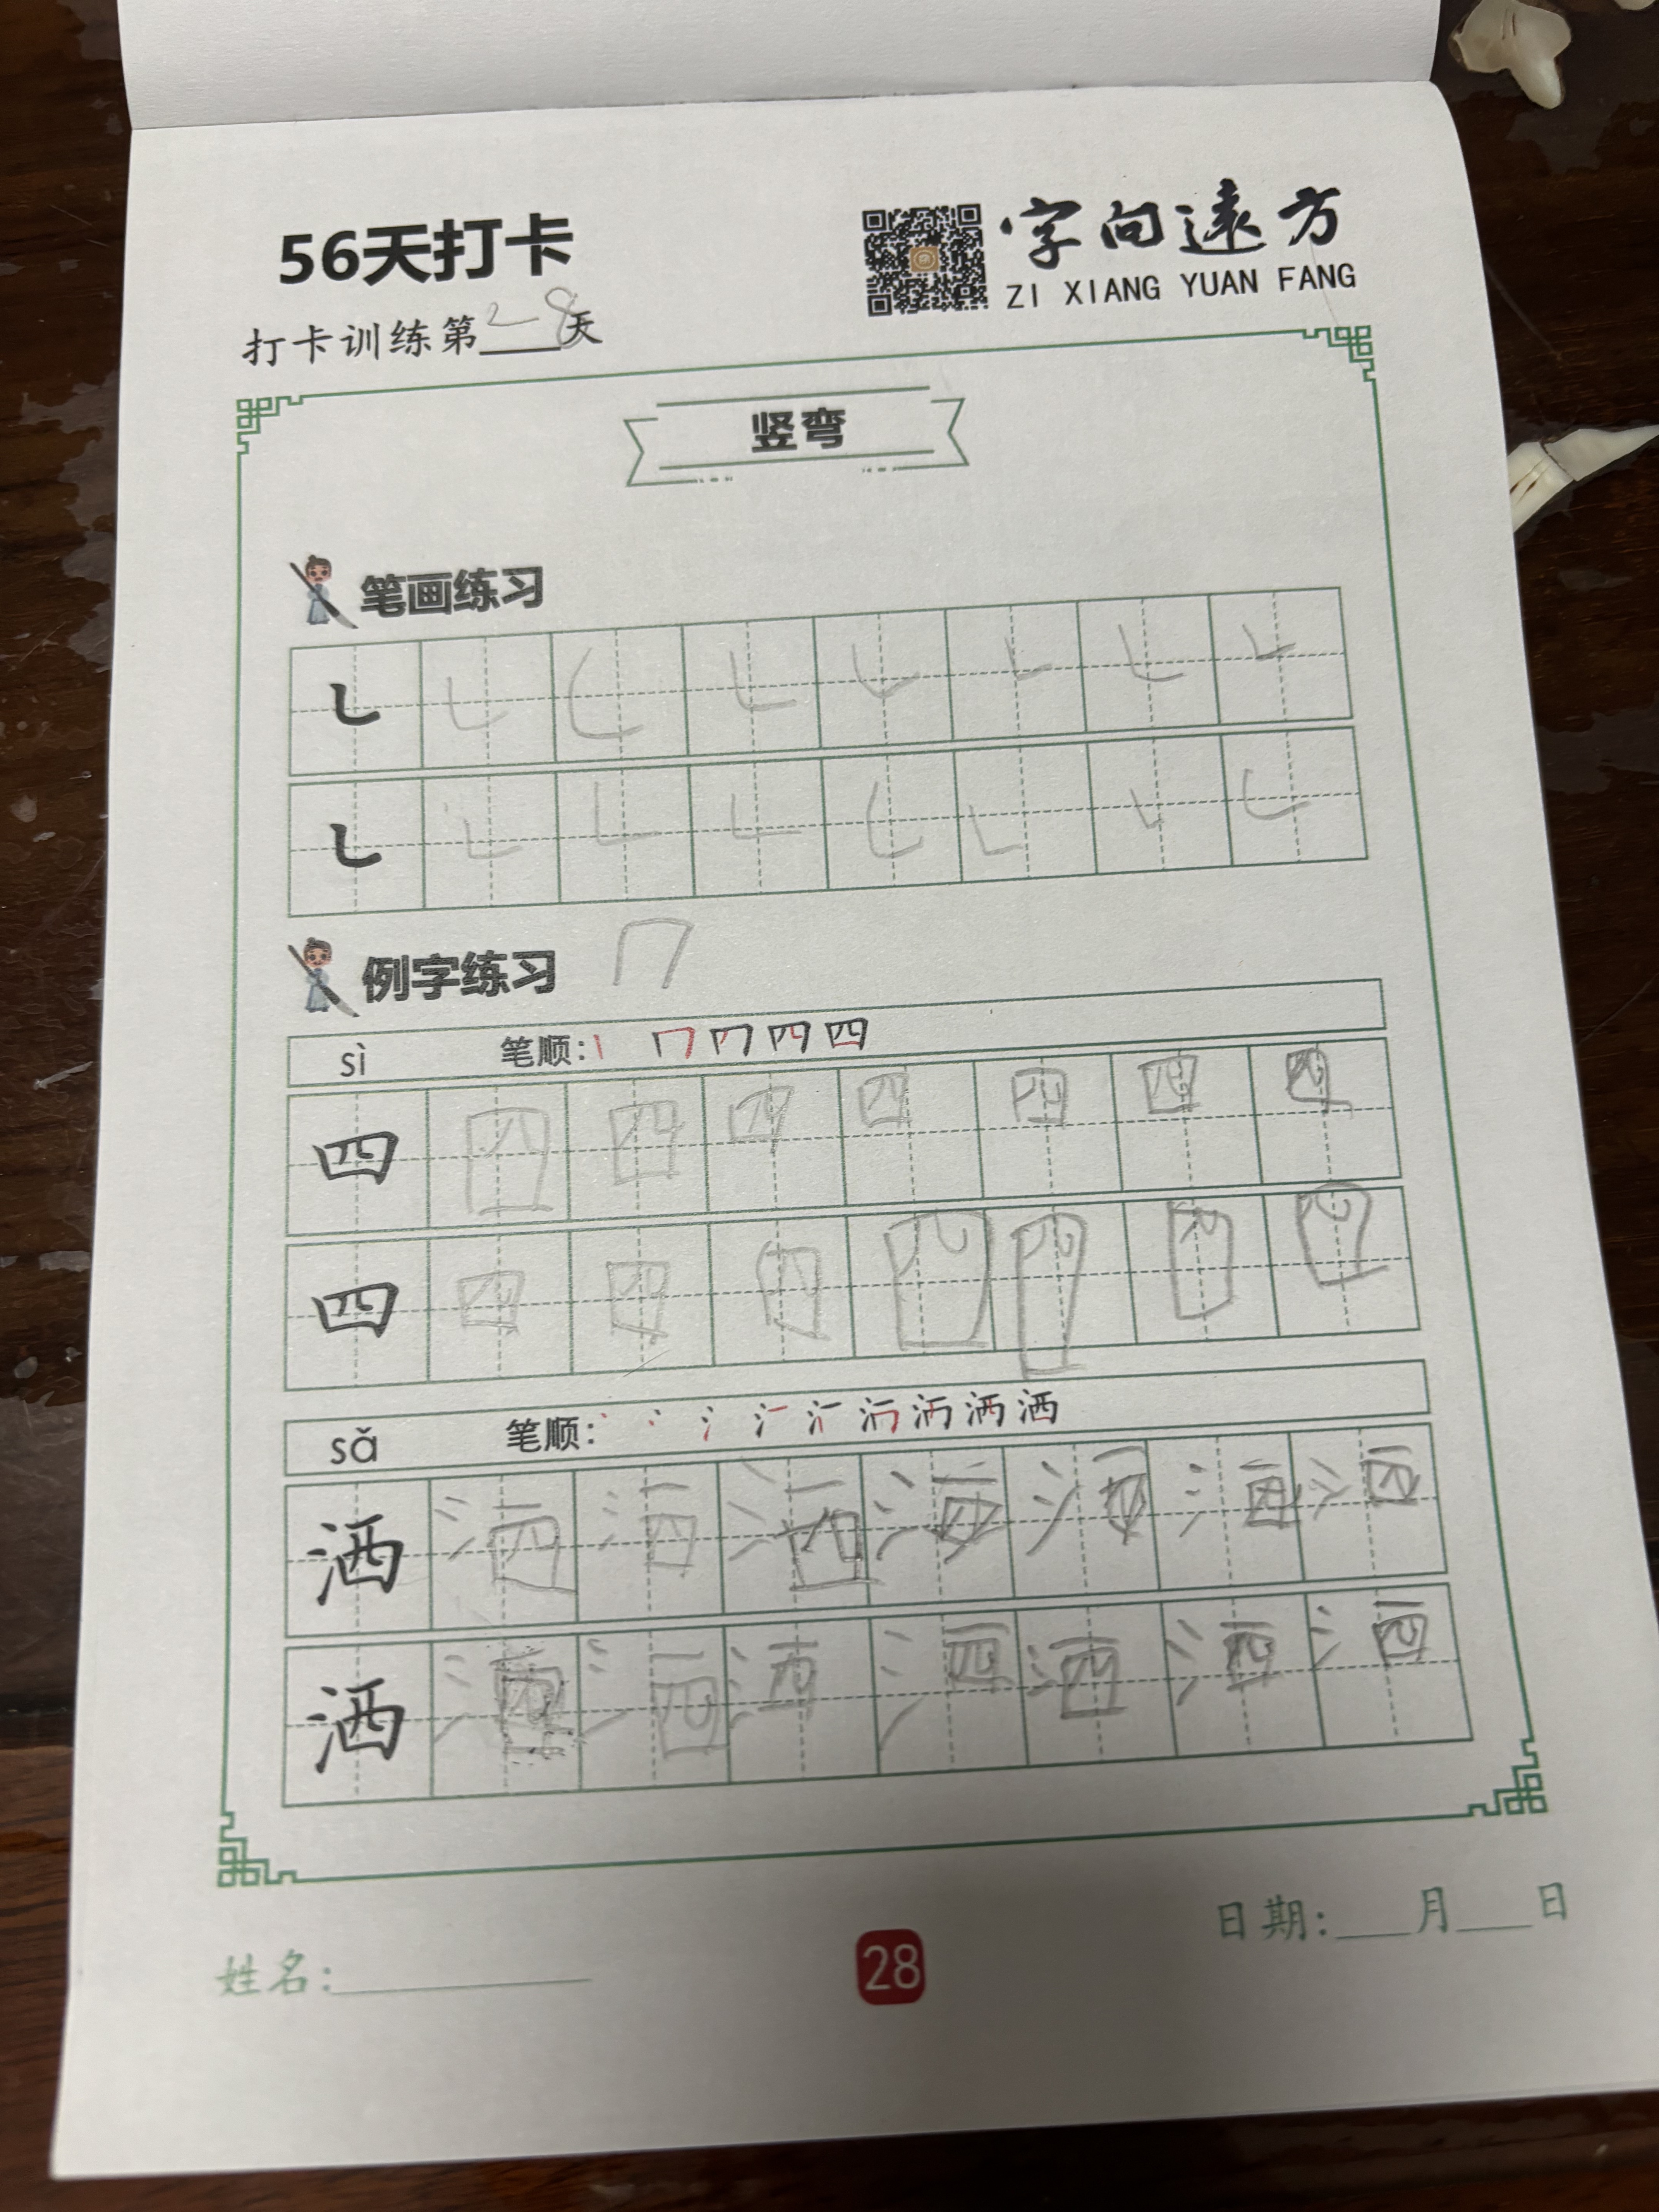 56天打卡
字向遠方
ZI XIANG YUAN FANG
打卡训练第28天
竖弯
笔画练习
㇄ ㇄ ㇄ ㇄ ㇄ ㇄ ㇄ ㇄
㇄ ㇄ ㇄ ㇄ ㇄ ㇄ ㇄ ㇄
例字练习 冂
sì 笔顺: 四
四 四 四 四 四 四 四 四
四 四 四 四 四 四 四 四
sǎ 笔顺: 洒
洒 洒 洒 洒 洒 洒 洒 洒
洒 洒 洒 洒 洒 洒 洒 洒
姓名:
28
日期: 月 日